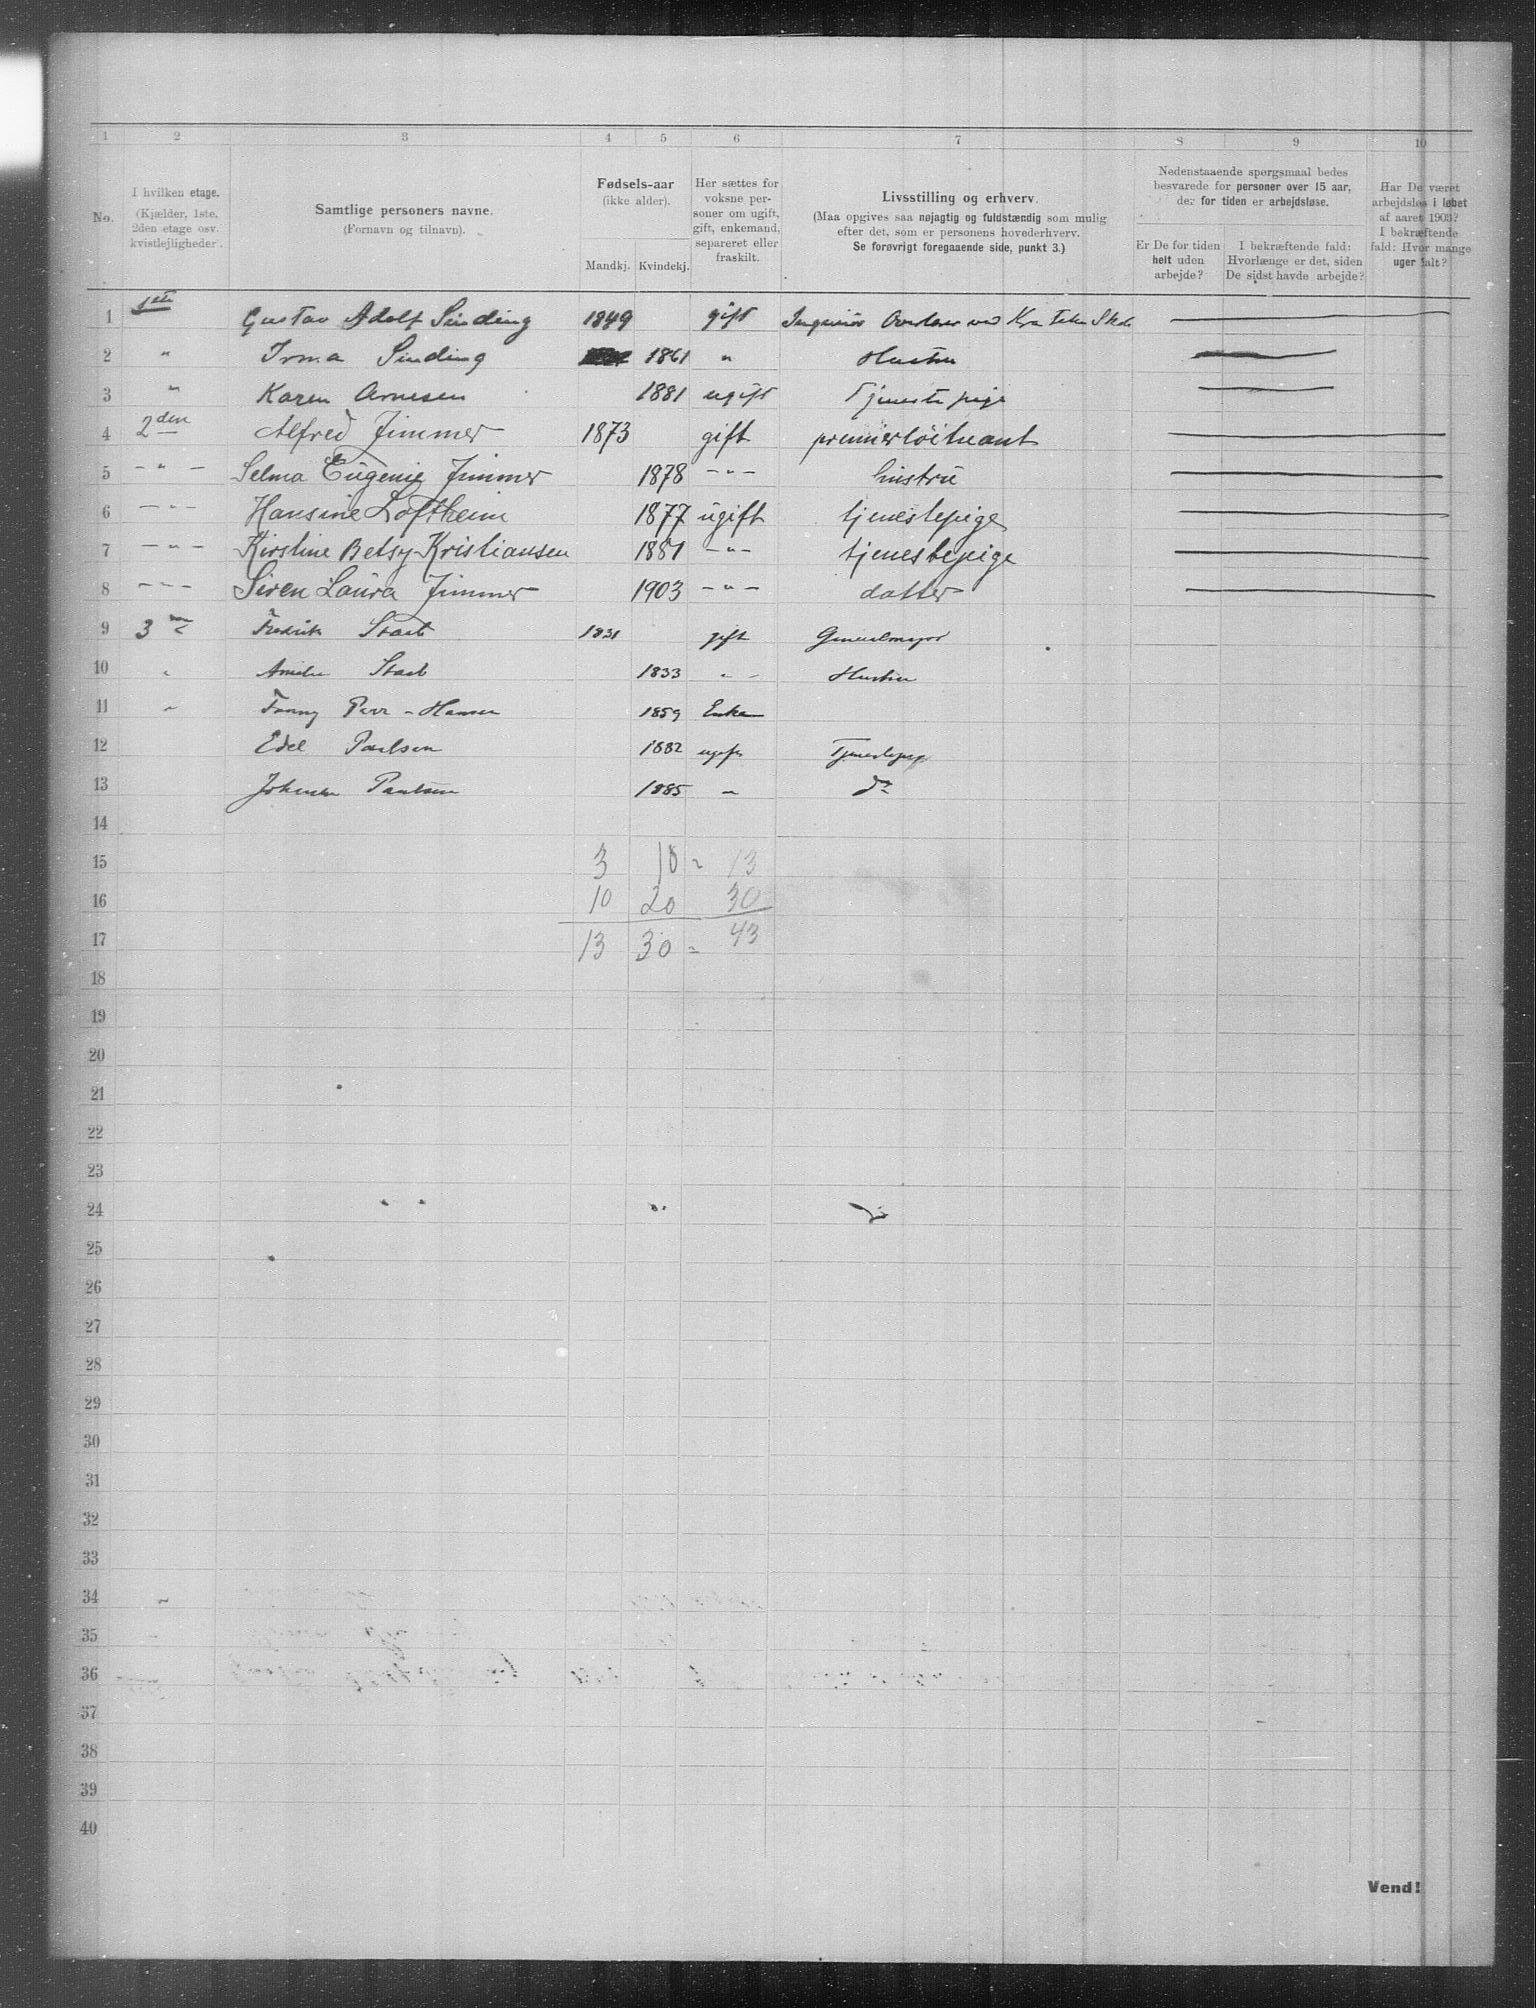 1 2 3 4 5 6 7 8 9 10
No.
I hvilken etage.
(Kjælder, 1ste,
2den etage osv.
kvistlejligheder.
Samtlige personers navne.
(Fornavn og tilnavn).
Fødsels-aar
(ikke alder).
Mandkj. Kvindekj.
Her sættes for
voksne per-
soner om ugift,
gift, enkemand,
separeret eller
fraskilt.
Livsstilling og erhverv.
(Maa opgives saa nøjagtig og fuldstændig som mulig
efter det, som er personens hovederhverv.
Se forøvrigt foregaaende side, punkt 3.)
Nedenstaaende spørgsmaal bedes
besvarede for personer over 15 aar,
der for tiden er arbejdsløse.
Er De for tiden
helt uden
arbejde?
I bekræftende fald:
Hvorlænge er det, siden
De sidst havde arbejde?
Har De været
arbejdsløs i løbet
af aaret 1903?
I bekræftende
fald: Hvor mange
uger ialt?
1 1ste Gustav Adolf Sinding 1849 gift Ingeniør Overlærer ved Kra Tekn Skole
2 " Irma Sinding 1861 " Hustru
3 " Karen Arnesen 1881 ugift Tjenestepige
4 2den Alfred Zimmer 1873 gift premierløitnant
5 - " - Selma Eugenie Zimmer 1878 - " - hustru
6 - " - Hansine Loftheim 1877 ugift tjenestepige
7 - " - Kirstine Betsy Kristiansen 1881 - " - tjenestepige
8 - " - Siren Laura Zimmer 1903 - " - datter
9 3 Fredrik Stael 1831 gift Generalmajor
10 " Stael 1833 " Hustru
11 " Fanny - Hansen 1859 Enke
12 Edel Paulsen 1882 ugift Tjenestepige
13 Paulsen 1885 " do
14
15 3 10 = 13
16 10 20 30
17 13 30 = 43
18
19
20
21
22
23
24
25
26
27
28
29
30
31
32
33
34
35
36
37
38
39
40
Vend!